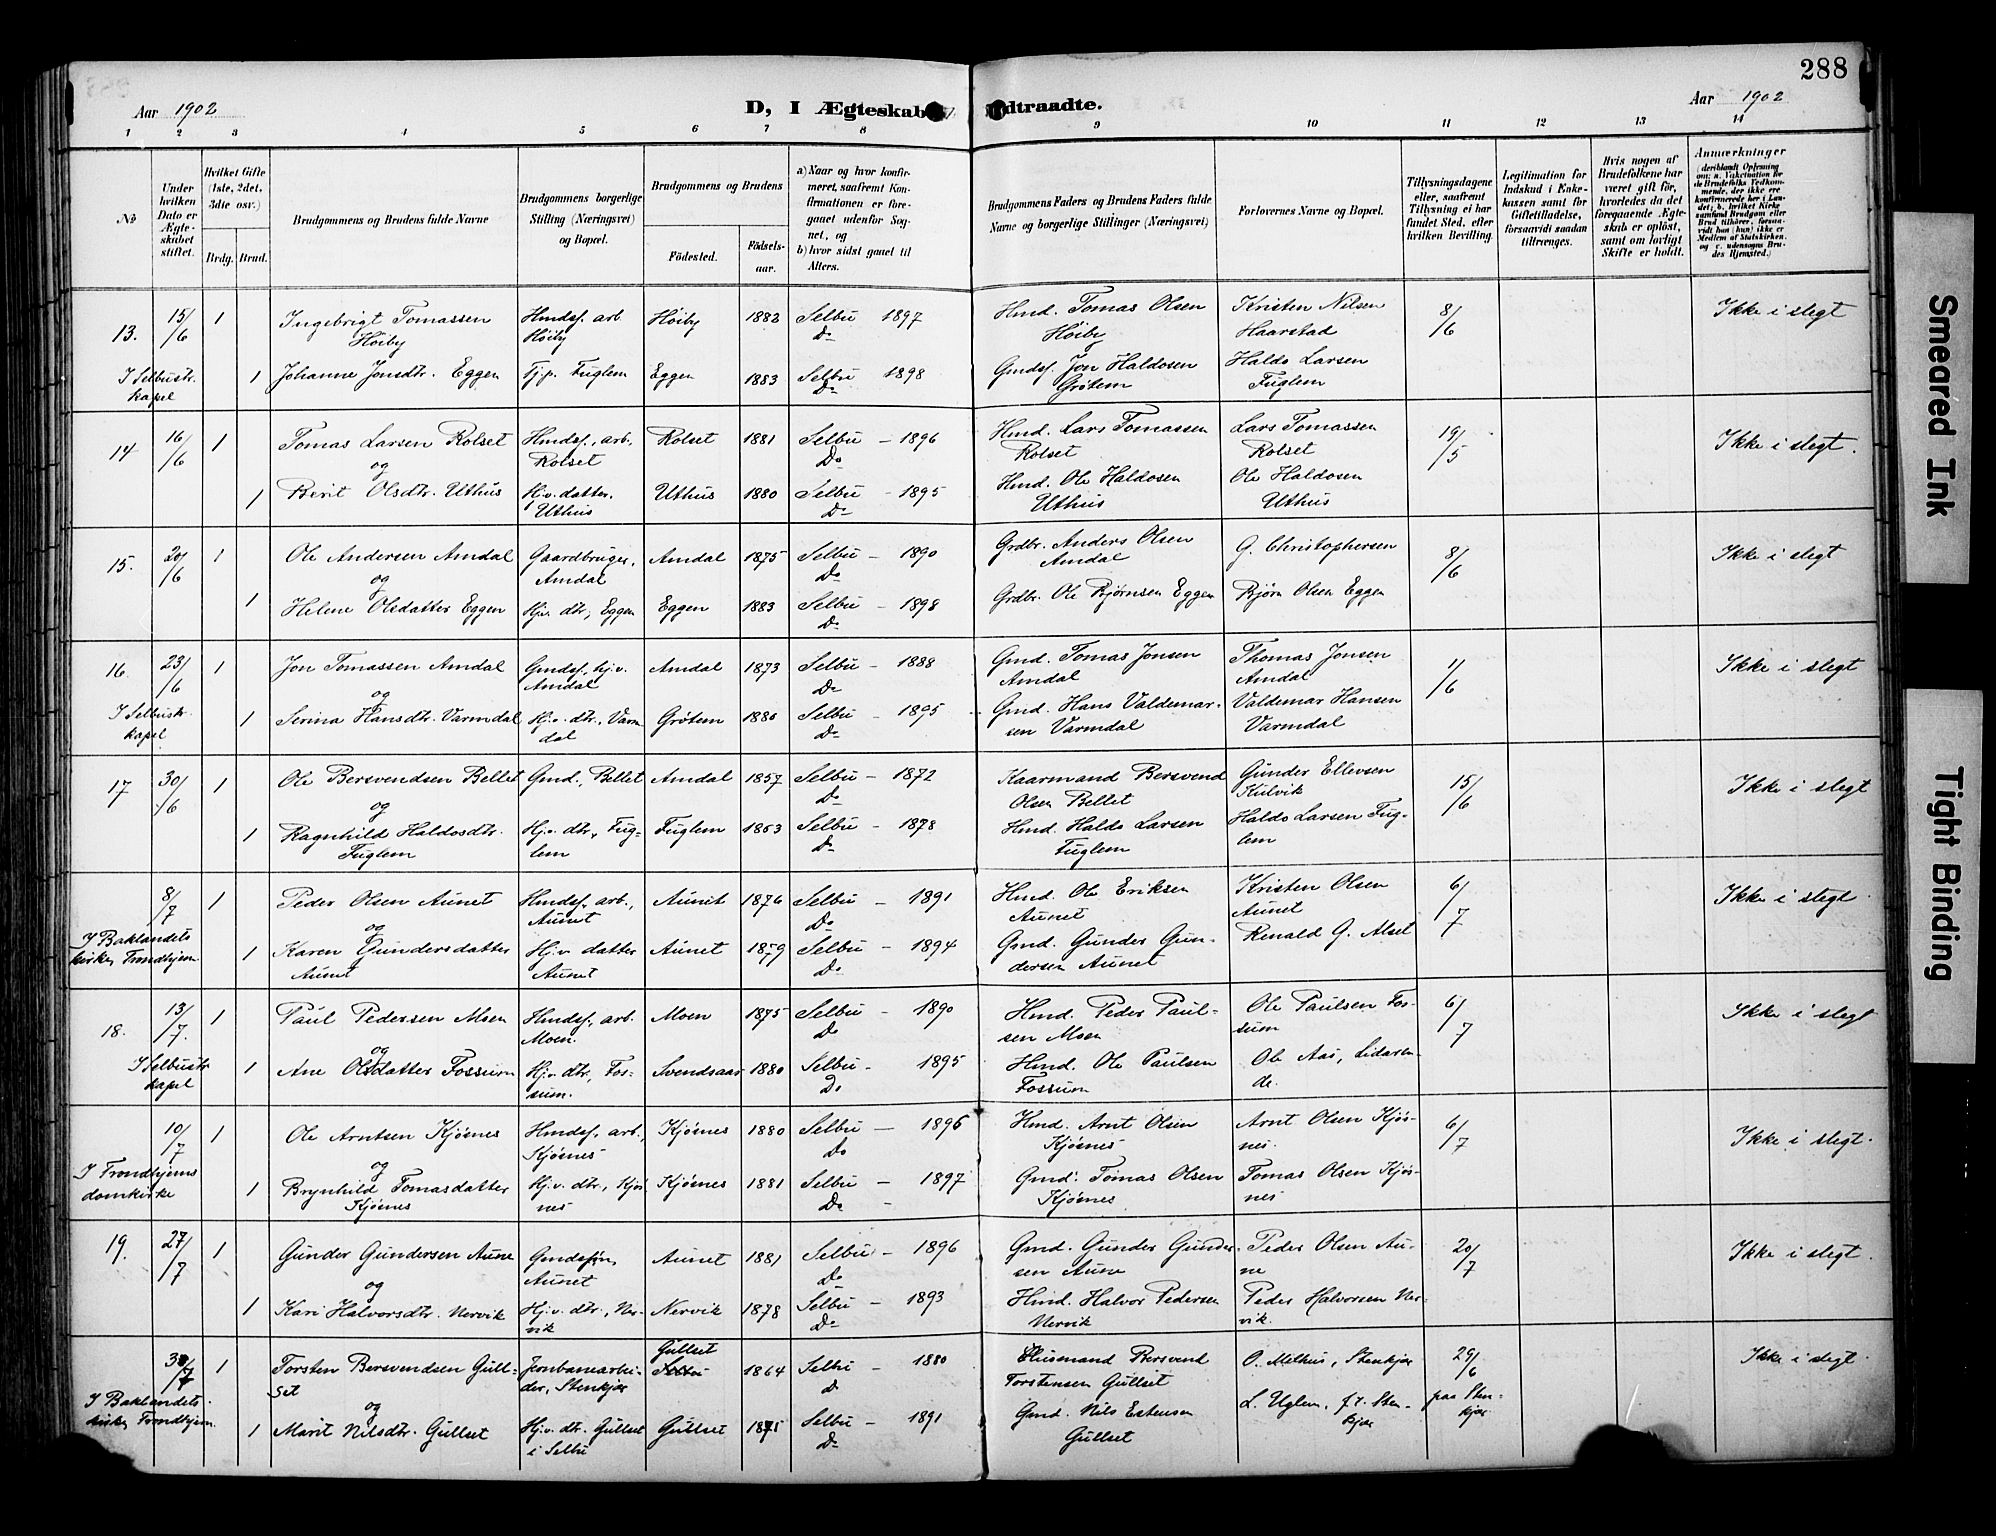 288
Aar 1902
D, I Ægteskab
dtraadte.
Aar 1902
1 2 3 4 5 6 7 8 9 10 11 12 13 14
No
Under hvilken Dato er Ægteskabet stiftet.
Hvilket Gifte (1ste, 2det, 3die osv.)
Brdg. Brud.
Brudgommens og Brudens fulde Navne
Brudgommens borgerlige Stilling (Næringsvei) og Bopæl.
Brudgommens og Brudens
Födested.
Födselsaar.
a) Naar og hvor konfirmeret, saafremt Konfirmationen er foregaaet udenfor Sognet, og
b) hvor sidst gaaet til Alters.
Brudgommens Faders og Brudens Faders fulde Navne og borgerlige Stillinger (Næringsvei)
Forlovernes Navne og Bopæl.
Tillysningsdagene eller, saafremt Tillysning ei har fundet Sted, efter hvilken Bevilling.
Legitimation for Indskud i Enkekassen samt for Giftetilladelse, forsaavidt saadan tiltrænges.
Hvis nogen af Brudefolkene har været gift før, hvorledes da det foregaaende Ægteskab er oplöst, samt om lovligt Skifte er holdt.
Anmærkninger
(deriblandt Oplysning om: a. Vakcination for de Brudefolks Vedkommende, der ikke ere konfirmerede her i Landet; b. hvilket Kirkesamfund Brudgom eller Brud tilhörer, forsaavidt han (hun) ikke er Medlem af Statskirken, og c. udensogns Brudes Hjemsted.)
13. 15/6 1 Ingebrigt Tomassen Höiby Hmdsf. arb. Höiby Höiby 1882 Selbu 1897 Do Hmd. Tomas Olsen Höiby Kristen Nilsen Haarstad 8/6 Ikke i slegt
I Selbustr. kapel 1 Johanne Jonsdtr. Eggen Tj.p. Fuglem Eggen 1883 Selbu 1898 Do Gmdsf. Jon Haldosen Grötem Haldo Larsen Fuglem
14 16/6 1 Tomas Larsen Rolset Hmdsf., arb., Rolset Rolset 1881 Selbu - 1896 Do Hmd. Lars Tomassen Rolset Lars Tomassen Rolset 19/5 Ikke i slegt.
og
1 Berit Olsdtr. Uthus Hj.v. datter, Uthus Uthus 1880 Selbu - 1895 Do Hmd. Ole Haldosen Uthus Ole Haldosen Uthus
15. 20/6 1 Ole Andersen Amdal Gaardbruger, Amdal Amdal 1875 Selbu - 1890 Do Grdbr. Anders Olsen Amdal G. Christophersen 8/6 Ikke i slegt
og
1 Helene Olsdatter Eggen Hjv. dtr, Eggen Eggen 1883 Selbu - 1898 Do Grdbr. Ole Bjørnsen Eggen Bjørn Olsen Eggen
16. 23/6 1 Jon Tomassen Amdal Gmdsf. hj.v. Amdal Amdal 1873 Selbu - 1888 Do Gmd. Tomas Jonsen Amdal Thomas Jonsen Amdal 1/6 Ikke i slegt
og
I Selbustr. kapel 1 Serina Hansdtr. Varmdal Hj.v. dtr., Varmdal Grötem 1880 Selbu - 1895 Do Gmd. Hans Valdemarsen Varmdal Valdemar Hansen Varmdal
17 30/6 1 Ole Bersvendsen Bellet Gmd. Bellet Amdal 1857 Selbu - 1872 Do Kaarmand Bersvend Olsen Bellet Gunder Ellevsen Kulvik 15/6 Ikke i slegt
og
1 Ragnhild Haldosdtr. Fuglem Hj.v. dtr, Fuglem Fuglem 1863 Selbu - 1878 Do Hmd. Haldo Larsen Fuglem Haldo Larsen Fuglem
8/7 1 Peder Olsen Aunet Hmdsf. arb., Aunet Aunet 1876 Selbu - 1891 Do Hmd. Ole Eriksen Aunet Kristen Olsen Aunet 6/7 Ikke i slegt.
og
I Baklandets kirke, Trondhjem. 1 Karen Gundersdatter Aunet Hj.v datter Aunet Aunet 1879 Selbu - 1894 Do Gmd. Gunder Gundersen Aunet Renald G. Alset
18. 13/7. 1 Paul Pedersen Moen Hmdsf., arb. Moen. Moen 1875 Selbu - 1890 Do Hmd. Peder Paulsen Moen Ole Paulsen Fossum 6/7 Ikke i slegt
og
I Selbustr kapel 1 Ane Olsdatter Fossum Hj.v. dtr, Fossum. Svendsaas 1880 Selbu - 1895 Do Hmd. Ole Paulsen Fossum Ole Aas, Lidarende.
10/7 1 Ole Arntsen Kjösnes Hmdsf., arb., Kjösnes Kjösnes 1880 Selbu - 1896 Do Hmd. Arnt Olsen Kjösnes Arnt Olsen Kjösnes. 6/7 Ikke i slegt.
og
I Trondhjems domkirke 1 Brynhild Tomasdatter Kjösnes Hj.v. dtr, Kjösnes Kjösnes 1881 Selbu - 1897 Do Gmd. Tomas Olsen Kjösnes Tomas Olsen Kjösnes
19. 27/7 1 Gunder Gundersen Aune Gmdssön, Aunet Aunet 1881 Selbu - 1896 Do Gmd. Gunder Gundersen Aune Peder Olsen Aune 20/7 Ikke i slegt.
og
1 Kari Halvorsdtr. Nervik Hj.v. dtr, Nervik Nervik 1878 Selbu - 1893 Do Hmd. Halvor Pedersen Nervik Peder Halvorsen Nervik.
30/7 1 Torsten Bersvendsen Gullset Jernbanearbeider, Stenkjær Gullset 1864 Selbu - 1880 Do Husmand Bersvend Torstensen Gullset O. Melhus, Stenkjær 29/6 paa Stenkjær Ikke i slegt.
og
I Baklandets kirke, Trondhjem. 1 Marit Nilsdtr. Gullset Hj.v. dtr. Gullset i Selbu Gullset 1875 Selbu - 1891 Do Gmd. Nils Estensen Gullset L. Uglem, f.t. Stenkjær
Smeared Ink
Tight Binding